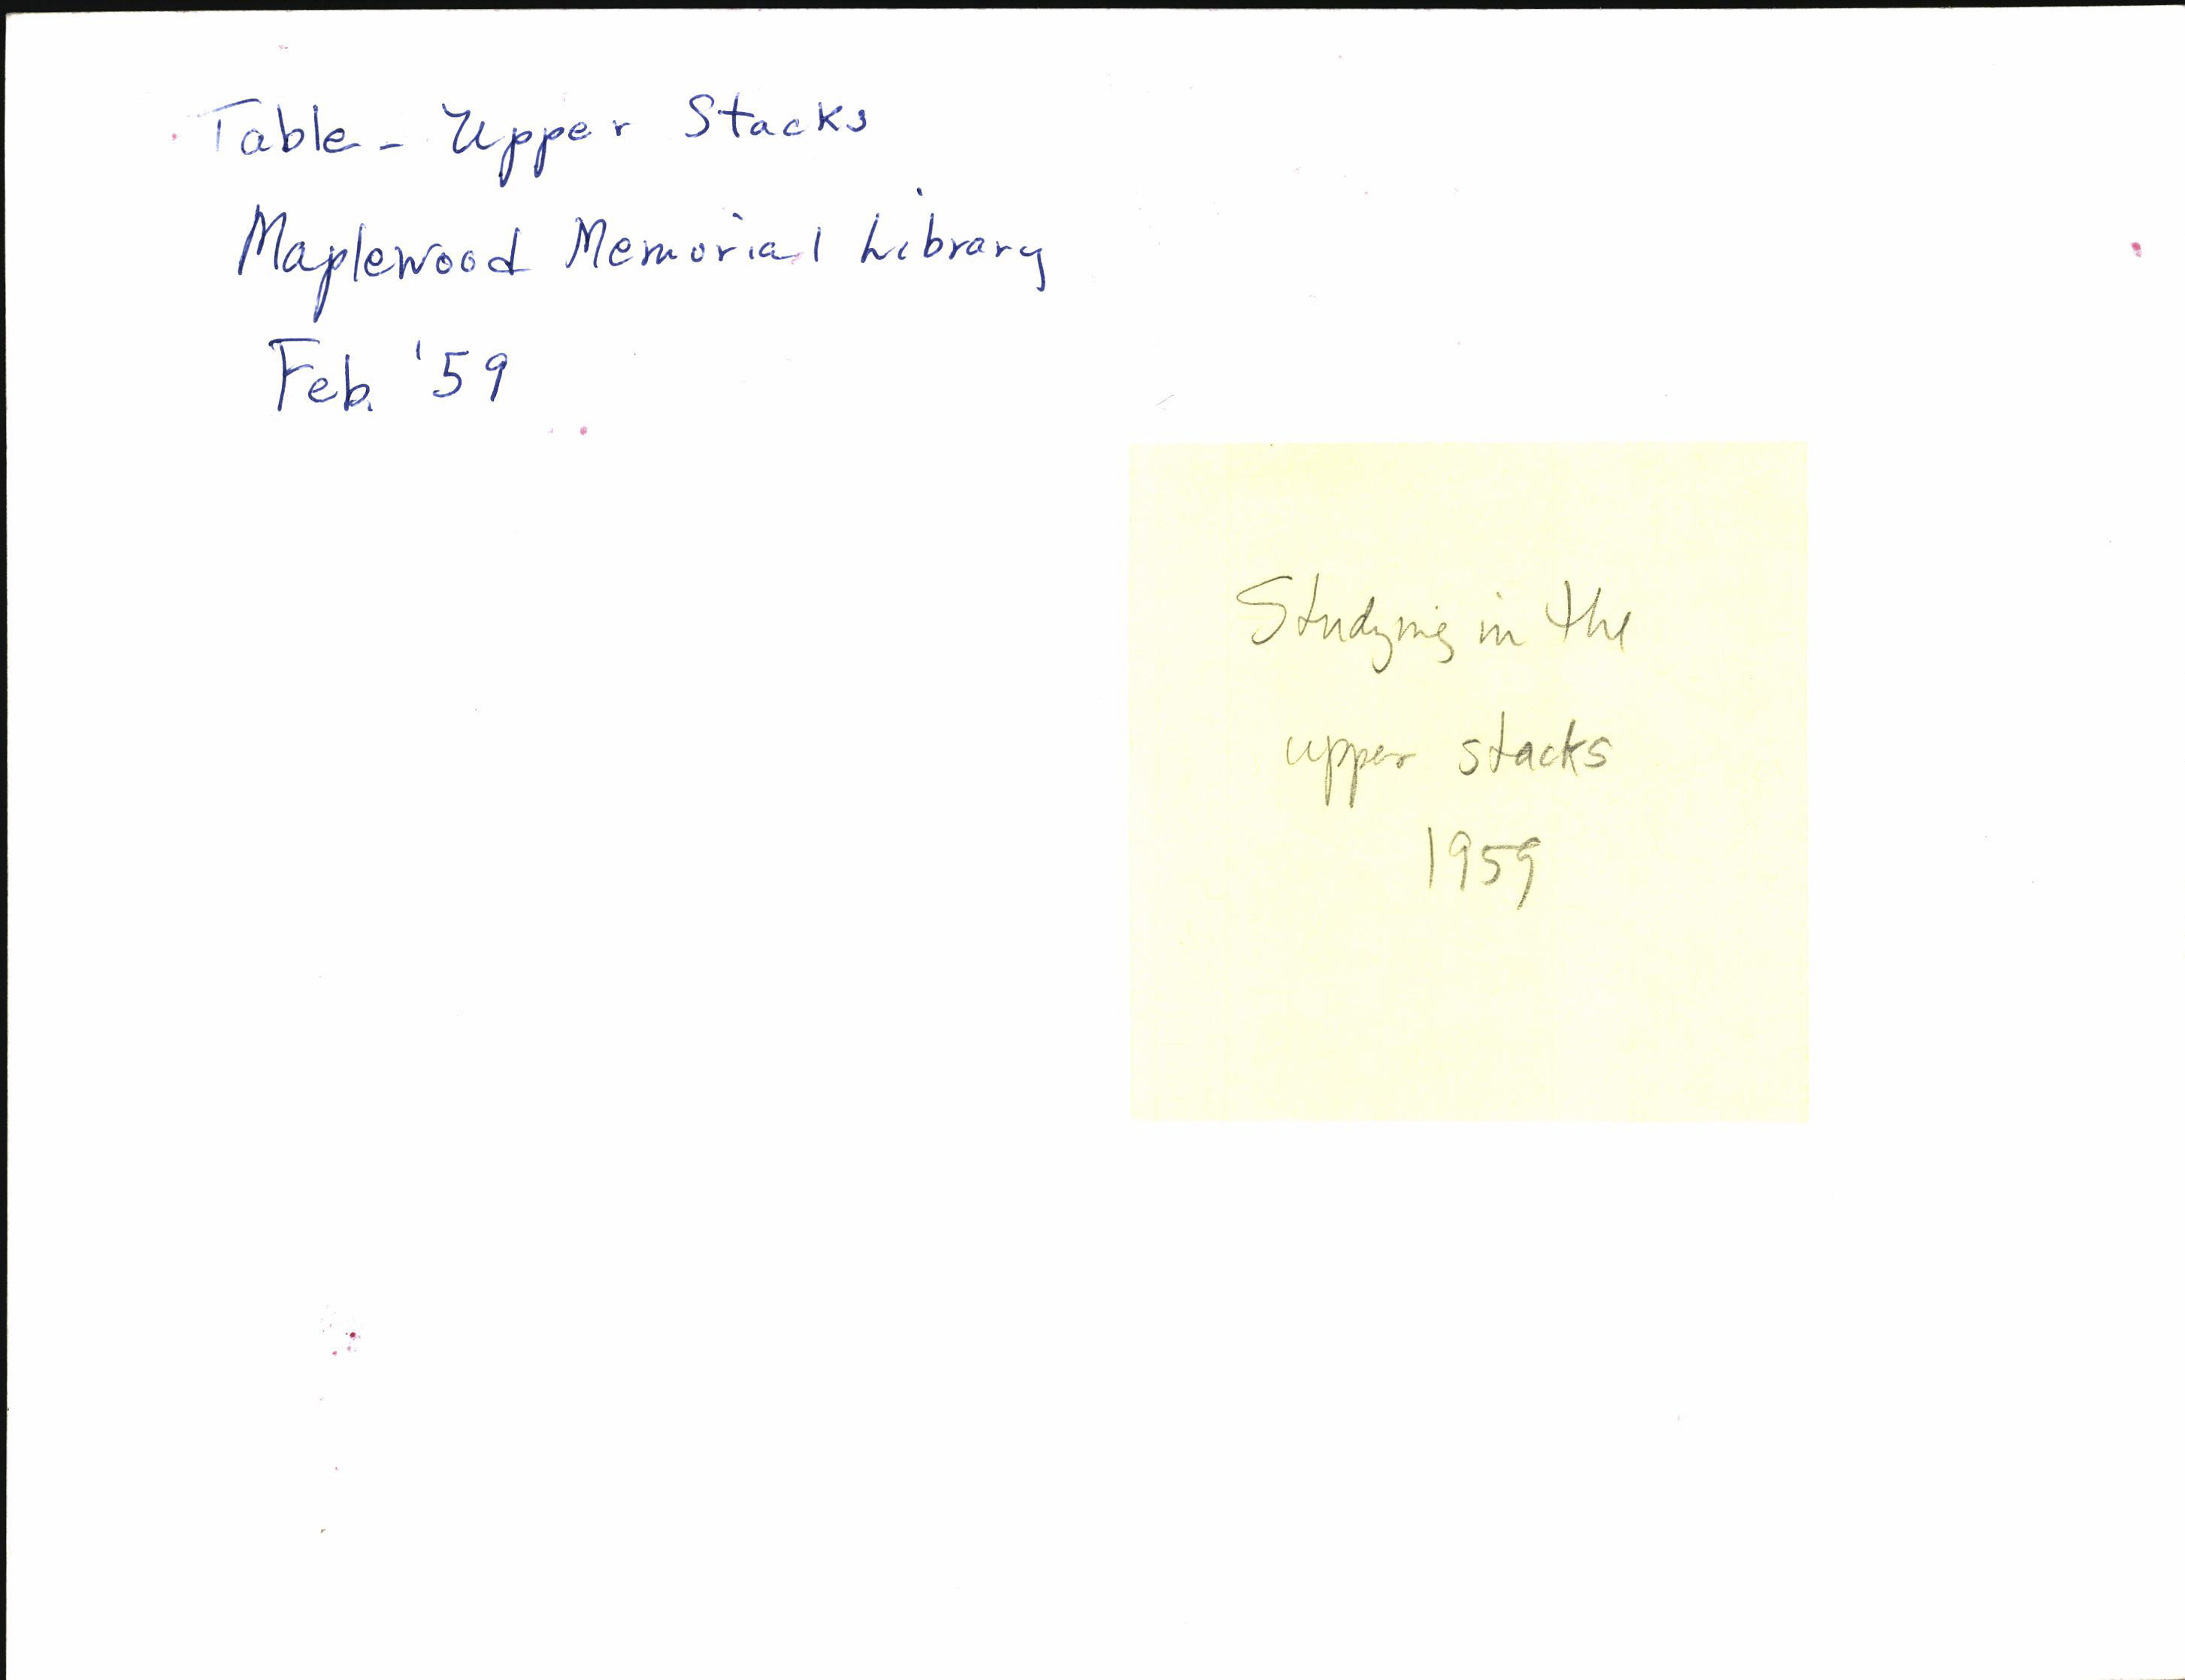 Table - Upper Stacks
Maplewood Memorial Library
Feb. '59
Studying in the
upper stacks
1959